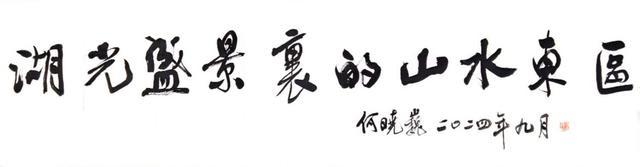 湖光盛景裏的山水東區
何曉巍 二〇二四年九月